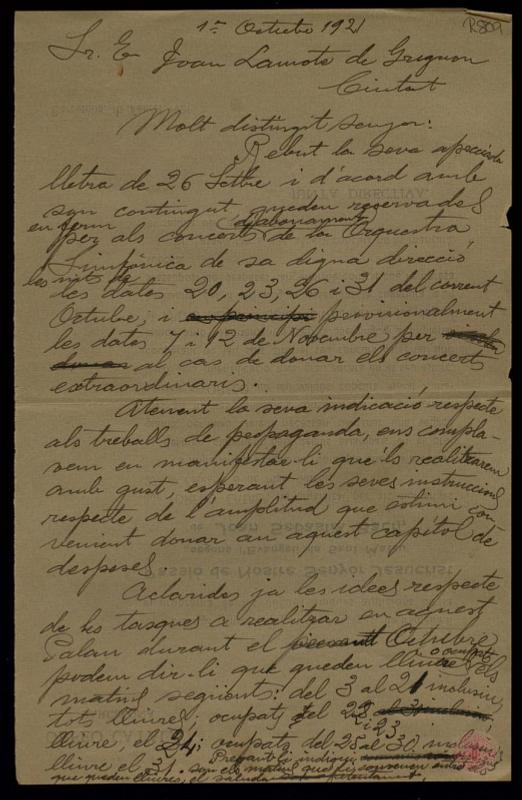 1er Octubre 1921
R809
Sr. En Joan Lamote de Grignon
Ciutat
Molt distingit senyor:
Rebut la seva apreciada
lletra de 26 Setbre i d'acord amb
son contingut queden reservades
en ferm d'abonament
per als concerts de la Orquestra
Simfònica de sa digna direcció
les nits de
les dates 20, 23, 26 i 31 del corrent
Octubre; i provisionalment
les dates 7 i 12 de Novembre per
al cas de donar els concerts
extraordinaris.
Atenent la seva indicació respecte
als treballs de propaganda, ens compla-
vem en manifestar-li que'ls realitzarem
amb gust, esperant les seves instruccions
respecte de l'amplitud que estimi con
venient donar an aquest capítol de
despeses.
Aclarides ja les idees respecte
de les tasques a realitzar en aquest
Palau durant el present Octubre
o ocupats
podem dir-li que queden lliures els
matins següents: del 3 al 21 inclusius,
tots lliures; ocupats del 22
i 23
lliure, el 24; ocupats del 25 al 30
lliure el 31. Pregant-li indiqui
son els matins que li convenen entre els
que queden lliures, el saluda